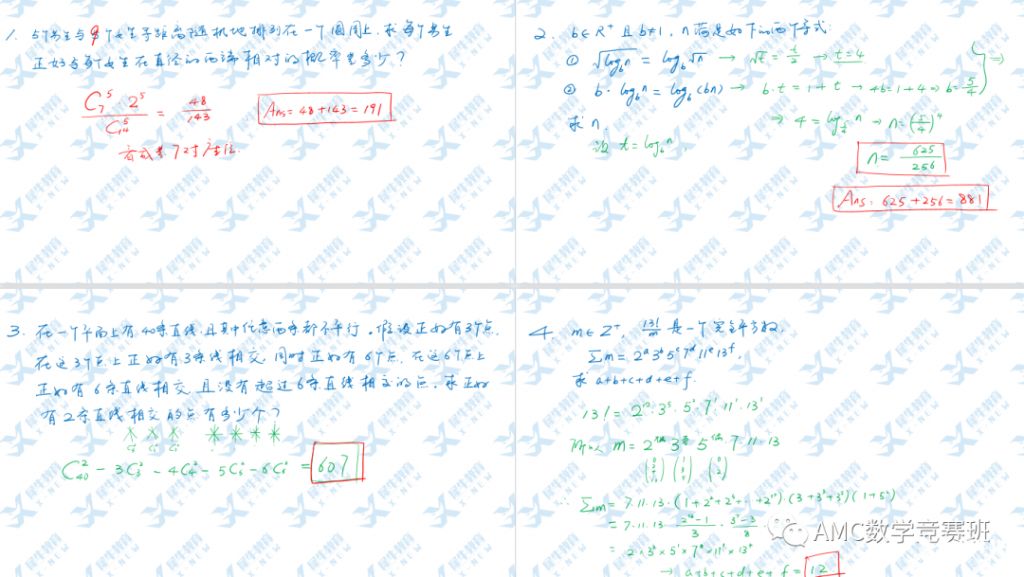 1. 5个男生与9个女生等距离随机地排列在一个圆周上, 求每个男生
正好与一个女生在直径的两端相对的概率是多少?
C₇⁵·2⁵ / C₁₄⁵ = 48/143
Ans = 48+143 = 191
7对座位.
2. b∈R⁺ 且 b≠1, n满足如下的两个等式:
① √(log_b n) = log_b √n → √t = t/2 → t=4
② b·log_b n = log_b (bn) → b·t = 1+t → 4b=1+4 → b=5/4 } ⇒
求 n.
⇒ 4 = log_{5/4} n → n=(5/4)⁴
设 t = log_b n.
n = 625/256
Ans: 625+256 = 881
3. 在一个平面上有40条直线, 且其中任意两条都不平行. 假设正好有3个点,
在这3个点上正好有3条线相交, 同时正好有6个点, 在这6个点上
正好有6条直线相交, 且没有超过6条直线相交的点, 求正好
有2条直线相交的点有多少个?
C₄₀² − 3C₃² − 4C₄² − 5C₅² − 6C₆² = 607
4. m∈Z⁺, 13!/m 是一个完全平方数,
∑m = 2ᵃ3ᵇ5ᶜ7ᵈ11ᵉ13ᶠ,
求 a+b+c+d+e+f.
13! = 2¹⁰·3⁵·5²·7¹·11¹·13¹
所以 m = 2 3 5 7·11·13
∴ ∑m = 7·11·13·(1+2²+2⁴+··+2¹⁰)·(3+3³+3⁵)(1+5²)
= 7·11·13· (2¹²−1)/3 · (3⁷−3)/8
= 2×3 ×5 ×7 ×11 ×13
→ a+b+c+d+e+f = 12
犀牛教育
X-NEW
AMC数学竞赛班